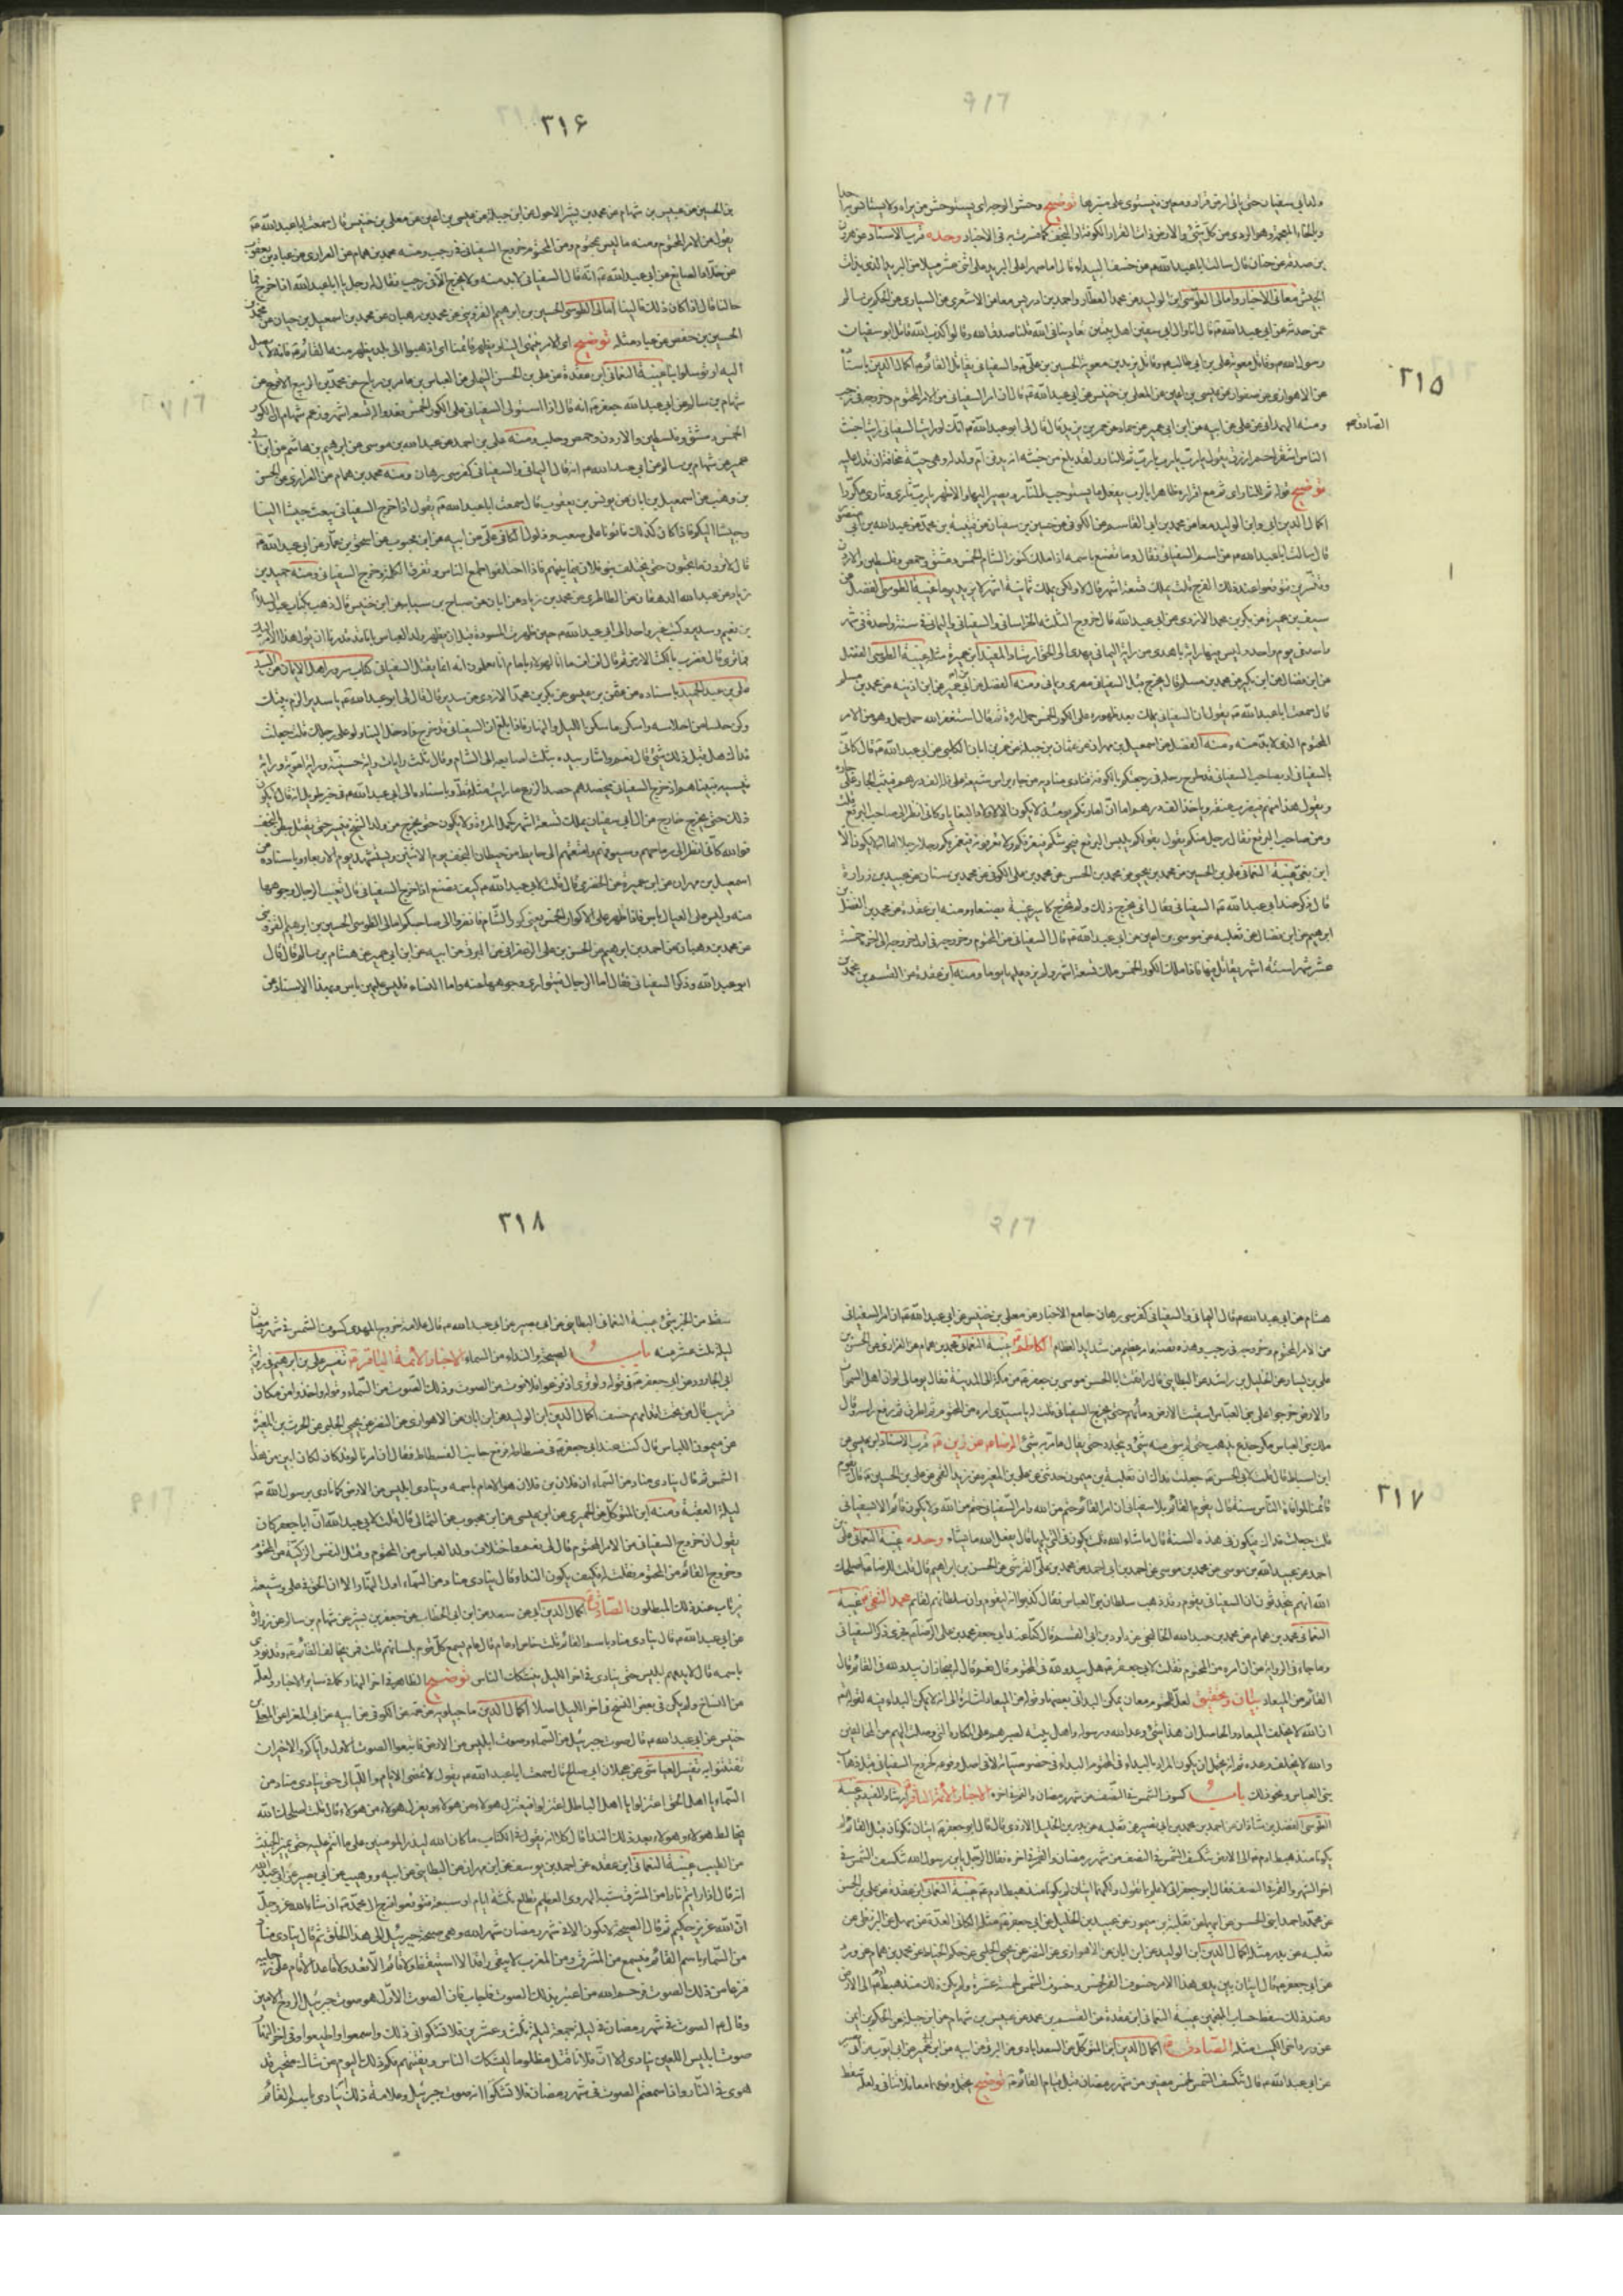 ٢١٥
الصادق ع
ولد ابي سفيان حتى ياتي ارض قرار ومعين فيستوي على منبرها توضيح وحش الوجه اي يستوحش من يراه ولا يستانس به
بن صدقة عن حنان قال سالت ابا عبد الله ع عن خسف البيداء قال اما صهرا على البريد على اثنى عشر ميلا من البريد الذي بذات
الجيش معاني الاخبار وامالي الطوسي ابن الوليد عن محمد العطار واحمد بن ادريس معا عن الاشعري عن السياري عن الحكم بن سالم
عمن حدثه عن ابي عبد الله ع قال انا وال ابي سفين اهل بيتين تعادينا في الله قلنا صدق الله وقالوا كذب الله قاتل ابو سفيان
رسول الله ص وقاتل معوية علي بن ابي طالب ع وقاتل يزيد بن معوية الحسين بن علي ع والسفياني يقاتل القائم ع اكمال الدين
عن الاهوازي عن صفوان عن عيسى بن اعين عن المعلى بن خنيس عن ابي عبد الله ع قال ان امر السفياني من الامر المحتوم وخروجه في رجب
ومنه الهمداني عن علي عن ابيه عن ابن ابي عمير عن حماد عن عمر بن يزيد قال قال لي ابو عبد الله ع انك لو رايت السفياني رايت اخبث
الناس اشقر احمر ازرق يقول يا رب يا رب يا رب ثم للنار ولقد بلغ من خبثه انه يدفن ام ولد له وهي حية مخافة ان تدل عليه
توضيح قوله ثم للنار
اكمال الدين ابي وابن الوليد معا عن محمد بن ابي القاسم عن الكوفي عن حسين بن سفيان عن قتيبة بن محمد عن عبد الله بن ابي منصور
قال سالت ابا عبد الله ع عن اسم السفياني فقال وما تصنع باسمه اذا ملك كنوز الشام الخمس دمشق وحمص وفلسطين والاردن
وقنسرين فتوقعوا عند ذلك الفرج قلت يملك تسعة اشهر قال لا ولكن يملك ثمانية اشهر لا يزيد يوما غيبة الطوسي الفضل عن
سيف بن عميرة عن بكر بن محمد الازدي عن ابي عبد الله قال خروج الثلثة الخراساني والسفياني واليماني في سنة واحدة في شهر
واحد في يوم واحد وليس فيها راية باهدى من راية اليماني يهدي الى الحق ارشاد المفيد ابن عميرة مثله غيبة الطوسي الفضل
عن ابن فضال عن ابن بكير عن محمد بن مسلم قال يخرج قبل السفياني مصري ويماني ومنه الفضل عن ابن ابي عمير عن ابن اذينه عن محمد بن مسلم
قال سمعت ابا عبد الله ع يقول ان السفياني يملك بعد ظهوره على الكور الخمس حمل امرأة ثم قال استغفر الله حمل جمل وهو من الامر
المحتوم الذي لا بد منه ومنه الفضل عن اسمعيل بن مهران عن عثمان بن جبلة عن عمر بن ابان الكلبي عن ابي عبد الله ع قال كاني
بالسفياني او بصاحب السفياني قد طرح رحله في رحبتكم بالكوفة فنادى مناديه من جاء براس شيعة علي فله الف درهم فيثب الجار على جاره
ويقول هذا منهم فيضرب عنقه وياخذ الف درهم اما ان امارتكم يومئذ لا يكون الا لاولاد البغايا وكاني انظر الى صاحب البرقع قلت
ومن صاحب البرقع فقال رجل منكم يقول بقولكم يلبس البرقع فيحوشكم فيعرفكم ولا تعرفونه فيغمز بكم رجلا رجلا اما انه لا يكون الا
ابن بغي غيبة النعماني علي بن الحسين عن محمد بن يحيى عن محمد بن الحسن عن محمد بن علي الكوفي عن محمد بن سنان عن عبيد بن زرارة
قال ذكر عند ابي عبد الله ع السفياني فقال انى يخرج ذلك ولم يخرج كاسر عينيه بصنعاء ومنه ابن عقدة عن محمد بن الفضل بن
ابرهيم عن ابن فضال عن ثعلبه عن موسى بن اعين عن ابي عبد الله ع قال السفياني من المحتوم وخروجه من اول خروجه الى اخره خمسة
عشر شهرا ستة اشهر يقاتل فيها فاذا ملك الكور الخمس ملك تسعة اشهر ولم يزد عليها يوما ومنه ابن عقدة عن القسم بن محمد بن
٢١٦
بن الحسين عن عبيس بن هشام عن محمد بن بشر الاحول عن ابن جبلة عن عيسى بن اعين عن معلى بن خنيس قال سمعت ابا عبد الله ع
يقول من الامر المحتوم ومنه ما ليس بمحتوم ومن المحتوم خروج السفياني في رجب ومنه محمد بن همام عن الفزاري عن عباد بن يعقوب
عن خلاد الصايغ عن ابي عبد الله ع انه قال السفياني لا بد منه ولا يخرج الا في رجب فقال له رجل يا ابا عبد الله اذا خرج فما
حالنا قال اذا كان ذلك فالينا امالي الطوسي الحسين بن ابرهيم القزويني عن محمد بن وهبان عن محمد بن اسمعيل بن حيان عن محمد بن
الحسين بن حفص عن عباد مثله توضيح اي الامر ينتهي الينا ويظهر قائمنا اي اذهبوا الى بلد يظهر منه القائم ع
اليه او توسلوا بنا غيبة النعماني ابن عقدة عن علي بن الحسن التيملي عن العباس بن عامر بن رباح عن محمد بن الربيع الاقرع عن
هشام بن سالم عن ابي عبد الله جعفر ع انه قال اذا استولى السفياني على الكور الخمس فعدوا له تسعة اشهر وزعم هشام ان الكور
الخمس دمشق وفلسطين والاردن وحمص وحلب ومنه علي بن احمد عن عبيد الله بن موسى عن ابرهيم بن هاشم عن ابن ابي
عمير عن هشام بن سالم عن ابي عبد الله ع انه قال اليماني والسفياني كفرسي رهان ومنه محمد بن همام عن الفزاري عن الحسن
بن وهب عن اسمعيل بن ابان عن يونس بن يعقوب قال سمعت ابا عبد الله ع يقول اذا خرج السفياني يبعث جيشا الينا
وجيشا اليكم فاذا كان كذلك فاتونا على صعب وذلول الكافي علي عن ابيه عن ابن محبوب عن اسحق بن عمار عن ابي عبد الله ع
قال لا ترون ما تحبون حتى يختلف بنو فلان فيما بينهم فاذا اختلفوا طمع الناس وتفرقت الكلمة وخرج السفياني ومنه حميد بن
زياد عن عبيد الله الدهقان عن الطاطري عن محمد بن زياد عن ابان عن صباح بن سيابه عن ابن خنيس قال ذهبت بكتاب عبد السلام
بن نعيم وسدير وكتب غير واحد الى ابي عبد الله ع حين ظهرت المسودة قبل ان يظهر ولد العباس بانا قد قدرنا ان يؤل هذا الامر اليك
فما ترى قال فضرب بالكتب الارض ثم قال اف اف ما انا لهؤلاء بامام اما يعلمون انه انما يقتل السفياني كتاب سرور اهل الايمان عن السيد
علي بن عبد الحميد باسناده عن عثمن بن عيسى عن بكر بن محمد الازدي عن سدير قال قال لي ابو عبد الله ع يا سدير الزم بيتك
وكن حلسا من احلاسه واسكن ما سكن الليل والنهار فاذا بلغ ان السفياني قد خرج فارحل الينا ولو على رجلك قلت جعلت
فداك هل قبل ذلك شيء قال نعم واشار بيده بثلث اصابعه الى الشام وقال ثلث رايات راية حسنية وراية اموية وراية
قيسيه فبيناهم اذ خرج السفياني فيحصدهم حصد الزرع ما رايت مثله قط وباسناده الى ابي عبد الله ع في خبر طويل انه قال لا يكون
ذلك حتى يخرج خارج من ال ابي سفيان يملك تسعة اشهر كحمل المرءة ولا يكون حتى يخرج من ولد الشيخ فيسير حتى يقتل ببطن النجف
فوالله كاني انظر الى رماحهم وسيوفهم وامتعتهم الى حايط من حيطان النجف يوم الاثنين ويستشهد يوم الاربعاء وباسناده عن
اسمعيل بن مهران عن ابن عميرة عن الحضرمي قال قلت لابي عبد الله ع كيف نصنع اذا خرج السفياني قال تغيب الرجال وجوهها
منه وليس على العيال باس فاذا ظهر على الاكوار الخمس يعني كور الشام فانفروا الى صاحبكم امالي الطوسي الحسين بن ابرهيم القزويني
عن محمد بن وهبان عن احمد بن ابرهيم عن الحسن بن علي الزعفراني عن البرقي عن ابيه عن ابن ابي عمير عن هشام بن سالم قال قال
ابو عبد الله وذكر السفياني فقال اما الرجال فتواري وجوهها عنه واما النساء فليس عليهن باس وبهذا الاسناد عن
٢١٧
هشام عن ابي عبد الله ع قال اليماني والسفياني كفرسي رهان جامع الاخبار عن معلى بن خنيس عن ابي عبد الله ع ان امر السفياني
من الامر المحتوم وخروجه في رجب الكاظم ع غيبة النعماني محمد بن همام عن الفزاري عن الحسن بن
علي بن يسار عن الخليل بن راشد عن البطايني قال رافقت ابا الحسن موسى بن جعفر ع من مكة الى المدينة فقال يوما لي لو ان اهل السموات
والارض خرجوا على بني العباس لسقيت الارض دماءهم حتى يخرج السفياني قلت له يا سيدي امره من المحتوم قال من المحتوم ثم اطرق ثم رفع راسه وقال
ملك بني العباس مكر وخدع يذهب حتى لم يبق منه شيء ويتجدد حتى يقال ما مر به شيء الرضا ع عن زين ع قرب الاسناد ابن عيسى عن
ابن اسباط قال قلت لابي الحسن ع جعلت فداك ان ثعلبة بن ميمون حدثني عن علي بن المغيرة عن زيد القمي عن علي بن الحسين ع قال يقوم
قائمنا لموافاة الناس سنة قال يقوم القائم بلا سفياني ان امر القائم حتم من الله وامر السفياني حتم من الله ولا يكون قائم الا بسفياني
قلت جعلت فداك فيكون في هذه السنة قال ما شاء الله قلت يكون في التي يليها قال يفعل الله ما يشاء وحده غيبة النعماني علي بن
احمد عن عبيد الله بن موسى عن محمد بن موسى عن احمد بن ابي احمد عن محمد بن علي القرشي عن الحسن بن ابرهيم قال قلت للرضا ع اصلحك
الله انهم يتحدثون ان السفياني يقوم وقد ذهب سلطان بني العباس فقال كذبوا انه ليقوم وان سلطانهم لقائم محمد التقي ع غيبة
النعماني محمد بن همام عن محمد بن عبد الله الخالنجي عن داود بن ابي القسم قال كنا عند ابي جعفر محمد بن علي الرضا ع فجرى ذكر السفياني
وما جاء في الرواية من ان امره من المحتوم فقلت لابي جعفر ع هل يبدو لله في المحتوم قال نعم قال له فنخاف ان يبدو لله في القائم قال
القائم من الميعاد بيان وتحقيق لعل للمحتوم معان يمكن البداء في بعضها وقوله من الميعاد اشارة الى انه لا يمكن البداء فيه لقوله تعالى
ان الله لا يخلف الميعاد والحاصل ان هذا شيء وعد الله رسوله واهل بيته لصبرهم على المكاره التي وصلت اليهم من المخالفين
والله لا يخلف وعده ثم انه يحتمل ان يكون المراد بالبداء في المحتوم البداء في خصوصياته لا في اصل وقوعه كخروج السفياني قبل ذهاب
بني العباس ونحو ذلك باب كسوف الشمس في النصف من شهر رمضان والقمر في اخره الاخبار الائمة الباقر ع ارشاد المفيد وغيبة
الطوسي الفضل بن شاذان عن احمد بن محمد بن ابي نصر عن ثعلبه عن بدر بن الخليل الازدي قال قال ابو جعفر ع ايتان تكونان قبل القائم لم
يكونا منذ هبط ادم ع الى الارض تنكسف الشمس في النصف من شهر رمضان والقمر في اخره فقال الرجل يا ابن رسول الله تنكسف الشمس في
اخر الشهر والقمر في النصف فقال ابو جعفر اني لاعلم بما تقول ولكنهما ايتان لم يكونا منذ هبط ادم ع غيبة النعماني ابن عقدة عن علي بن الحسن
ثعلبه عن بدر مثله اكمال الدين ابن الوليد عن ابن ابان عن الاهوازي عن النضر عن يحيى الحلبي عن حكم الحناط عن محمد بن همام عن ورد
عن ابي جعفر ع قال ايتان بين يدي هذا الامر خسوف القمر لخمس وخسوف الشمس لخمسة عشرة ولم يكن ذلك منذ هبط ادم الى الارض
وعند ذلك سقط حساب المنجمين غيبة النعماني ابن عقدة عن القسم بن محمد عن عبيس بن هشام عن ابن جبلة عن الحكم بن ايمن
عن ورد اخي الكميت مثله الصادق ع اكمال الدين ابن المتوكل عن السعدابادي عن البرقي عن ابيه عن ابن ابي عمير عن ابي ايوب عن ابي بصير
عن ابي عبد الله ع قال تنكسف الشمس لخمس مضين من شهر رمضان قبل قيام القائم ع توضيح يحتمل وقوعهما معا فلا تنافي ولعله سقط
٢١٨
سقط من الخبر شيء غيبة النعماني البطايني عن ابي بصير عن ابي عبد الله ع قال علامة خروج المهدي كسوف الشمس في شهر رمضان
ليلة ثلث عشر منه باب الصيحة والنداء من السماء الاخبار الائمة الباقر ع تفسير علي بن ابرهيم في رواية
ابي الجارود عن ابي جعفر ع في قوله ولو ترى اذ فزعوا فلا فوت من الصوت وذلك الصوت من السماء وقوله واخذوا من مكان
قريب قال من تحت اقدامهم خسف اكمال الدين ابن الوليد عن ابن ابان عن الاهوازي عن النضر عن يحيى الحلبي عن الحرث بن المغيرة
عن ميمون اللبان قال كنت عند ابي جعفر ع في فسطاطه فرفع جانب الفسطاط فقال ان امرنا لو قد كان لكان ابين من هذا
الشمس ثم قال ينادي مناد من السماء ان فلان بن فلان هو الامام باسمه وينادي ابليس من الارض كما نادى برسول الله ص
ليلة العقبة ومنه ابن المتوكل عن الحميري عن ابن عيسى عن ابن محبوب عن الثمالي قال قلت لابي عبد الله ان ابا جعفر كان
يقول ان خروج السفياني من الامر المحتوم قال لي نعم واختلاف ولد العباس من المحتوم وقتل النفس الزكية من المحتوم
وخروج القائم من المحتوم فقلت له كيف يكون النداء قال ينادي مناد من السماء اول النهار الا ان الحق في علي وشيعته
فيرتاب عند ذلك المبطلون الصادق ع اكمال الدين ابي عن سعد عن ابن ابي الخطاب عن جعفر بن بشير عن هشام بن سالم عن زرارة
عن ابي عبد الله ع قال ينادي مناد باسم القائم قلت خاص او عام قال عام يسمع كل قوم بلسانهم قلت فمن يخالف القائم ع وقد نودي
باسمه قال لا يدعهم ابليس حتى ينادي في اخر الليل فيشكك الناس توضيح الظاهر في اخر النهار كما في ساير الاخبار ولعله
من النساخ ولم يكن في بعض النسخ في اخر الليل اصلا اكمال الدين ماجيلويه عن عمه عن الكوفي عن ابيه عن ابي المغرا عن المعلى بن
خنيس عن ابي عبد الله ع قال صوت جبرئيل من السماء وصوت ابليس من الارض فاتبعوا الصوت الاول واياكم والاخير ان
تفتتنوا به تفسير العياشي عن عجلان ابي صالح قال سمعت ابا عبد الله ع يقول لا تمضي الايام والليالي حتى ينادي مناد من
السماء يا اهل الحق اعتزلوا يا اهل الباطل اعتزلوا فيعزل هؤلاء من هؤلاء ويعزل هؤلاء من هؤلاء قال قلت اصلحك الله
يخالط هؤلاء وهؤلاء بعد ذلك النداء قال كلا انه يقول في الكتاب ما كان الله ليذر المومنين على ما انتم عليه حتى يميز الخبيث
من الطيب غيبة النعماني ابن عقدة عن احمد بن يوسف عن ابن مهران عن البطايني عن ابيه ووهيب عن ابي بصير عن ابي عبد الله
انه قال اذا رايتم نارا من المشرق شبه الهروي العظيم تطلع ثلثة ايام او سبعة فتوقعوا فرج ال محمد ع ان شاء الله عز وجل
ان الله عزيز حكيم ثم قال الصيحة لا تكون الا في شهر رمضان شهر الله وهي صيحة جبرئيل الى هذا الخلق ثم قال ينادي مناد
من السماء باسم القائم فيسمع من المشرق ومن المغرب لا يبقى راقد الا استيقظ ولا قائم الا قعد ولا قاعد الا قام على رجليه
فزعا من ذلك الصوت فرحم الله من اعتبر بذلك الصوت فاجاب فان الصوت الاول هو صوت جبرئيل الروح الامين
وقال ع الصوت في شهر رمضان في ليلة جمعة ليلة ثلث وعشرين فلا تشكوا في ذلك واسمعوا واطيعوا وفي اخر النهار
صوت ابليس اللعين ينادي الا ان فلانا قتل مظلوما ليشكك الناس ويفتنهم فكم ذلك اليوم من شاك متحير قد
هوى في النار واذا سمعتم الصوت في شهر رمضان فلا تشكوا انه صوت جبرئيل وعلامة ذلك انه ينادي باسم القائم